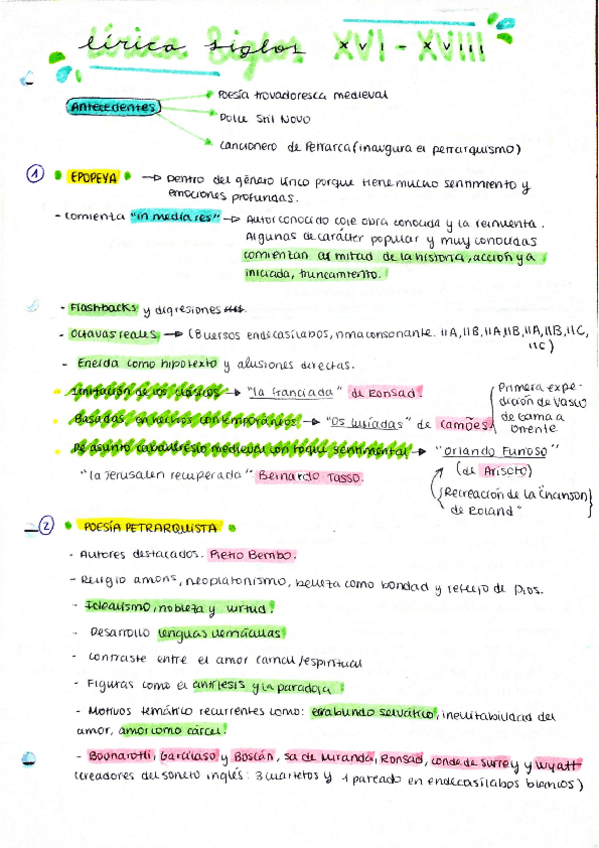 lírica siglos XVI - XVIII
Antecedentes
Poesía trovadoresca medieval
Dolce Stil Novo
Cancionero de Petrarca (inaugura el petrarquismo)
1 EPOPEYA → Dentro del género lírico porque tiene mucho sentimiento y
emociones profundas.
- Comienza "in media res" → Autor conocido coje obra conocida y la reinventa.
Algunas de carácter popular y muy conocidas
comienzan a mitad de la historia, acción ya
iniciada, truncamiento.
- Flashbacks y digresiones
- Octavas reales → (8 versos endecasílabos, rima consonante. 11A, 11B, 11A, 11B, 11A, 11B, 11C,
11C)
- Eneida como hipotexto y alusiones directas.
Imitación de los clásicos → "la franciada" de Ronsad.
Basadas en hechos contemporáneos → "Os lusíadas" de Camões.
(Primera expe-
dición de Vasco
de Gama a
Oriente
De asunto caballeresco medieval con toque sentimental → "Orlando Furioso"
(de Ariosto)
"la Jerusalen recuperada" Bernardo Tasso.
(Recreación de la "Chanson
de Roland"
2 POESÍA PETRARQUISTA
- Autores destacados. Pietro Bembo.
- Religio amoris, neoplatonismo, belleza como bondad y reflejo de Dios.
- Idealismo, nobleza y virtud.
- Desarrollo lenguas vernáculas
- Contraste entre el amor carnal/espiritual
- Figuras como el antítesis y la paradoja
- Motivos temático recurrentes como: errabundo selvático, inevitabilidad del
amor, amor como cárcel.
- Buonarotti, Garcilaso y Boscán, Sa de Miranda, Ronsad, conde de Surrey y Wyatt
(creadores del soneto inglés: 3 cuartetos y 1 pareado en endecasílabos blancos)